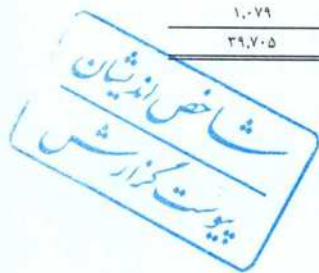 ۱,۰۷۹
۳۹,۷۰۵
شاخص اندیشان
پیوست گزارش